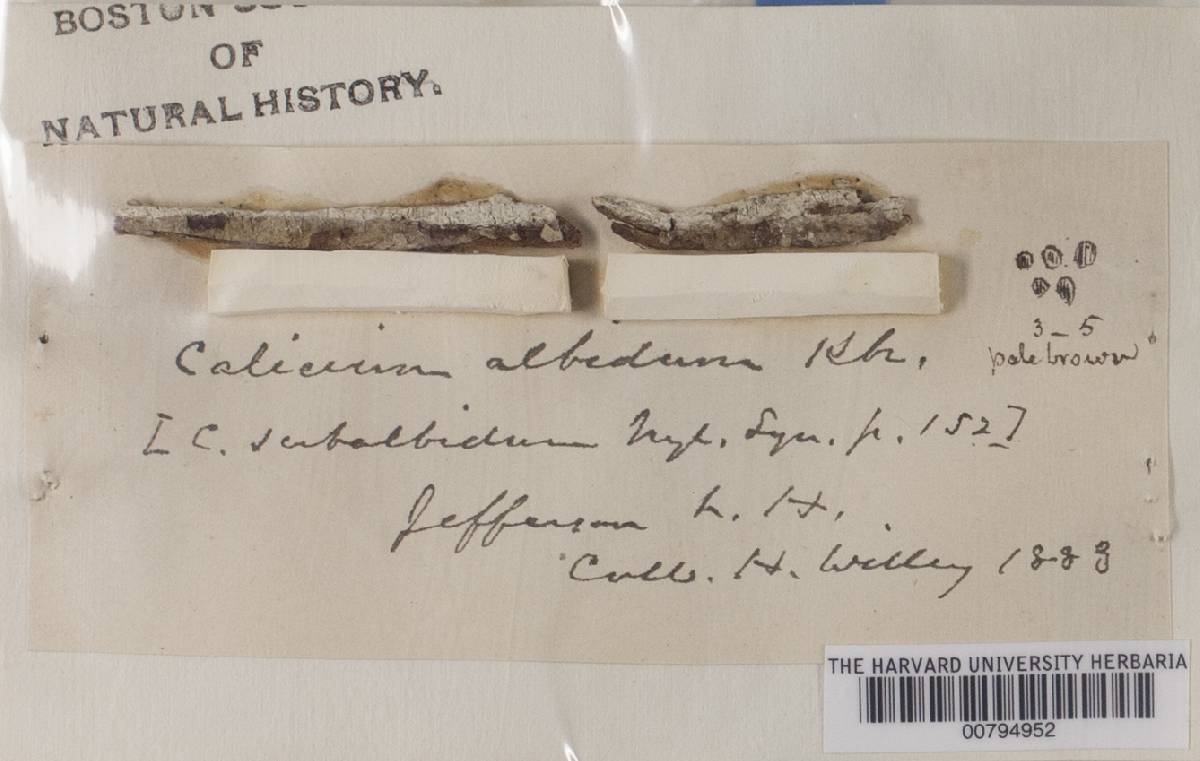 BOSTON
OF
NATURAL HISTORY.
3-5
pale brown
Calicium albidum Kbr.
[C. subalbidum Nyl. Syn. p. 152]
Jefferson N. H.
Coll. H. Willey 1883
THE HARVARD UNIVERSITY HERBARIA
00794952